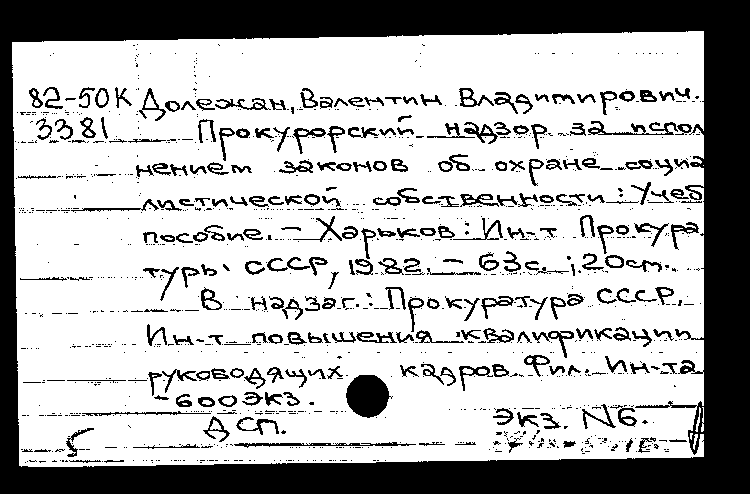 82-50К Долежан, Валентин Владимирович.
3381 Прокурорский надзор за испол
нением законов об охране социа
листической собственности: Учеб
пособие. – Харьков: Ин-т Прокура
туры СССР, 1982. – 63с.; 20см.
В надзаг.: Прокуратура СССР,
Ин-т повышения квалификации
руководящих кадров. Фил. Ин-та
– 600 экз.
ДСП. Экз. N6.
5